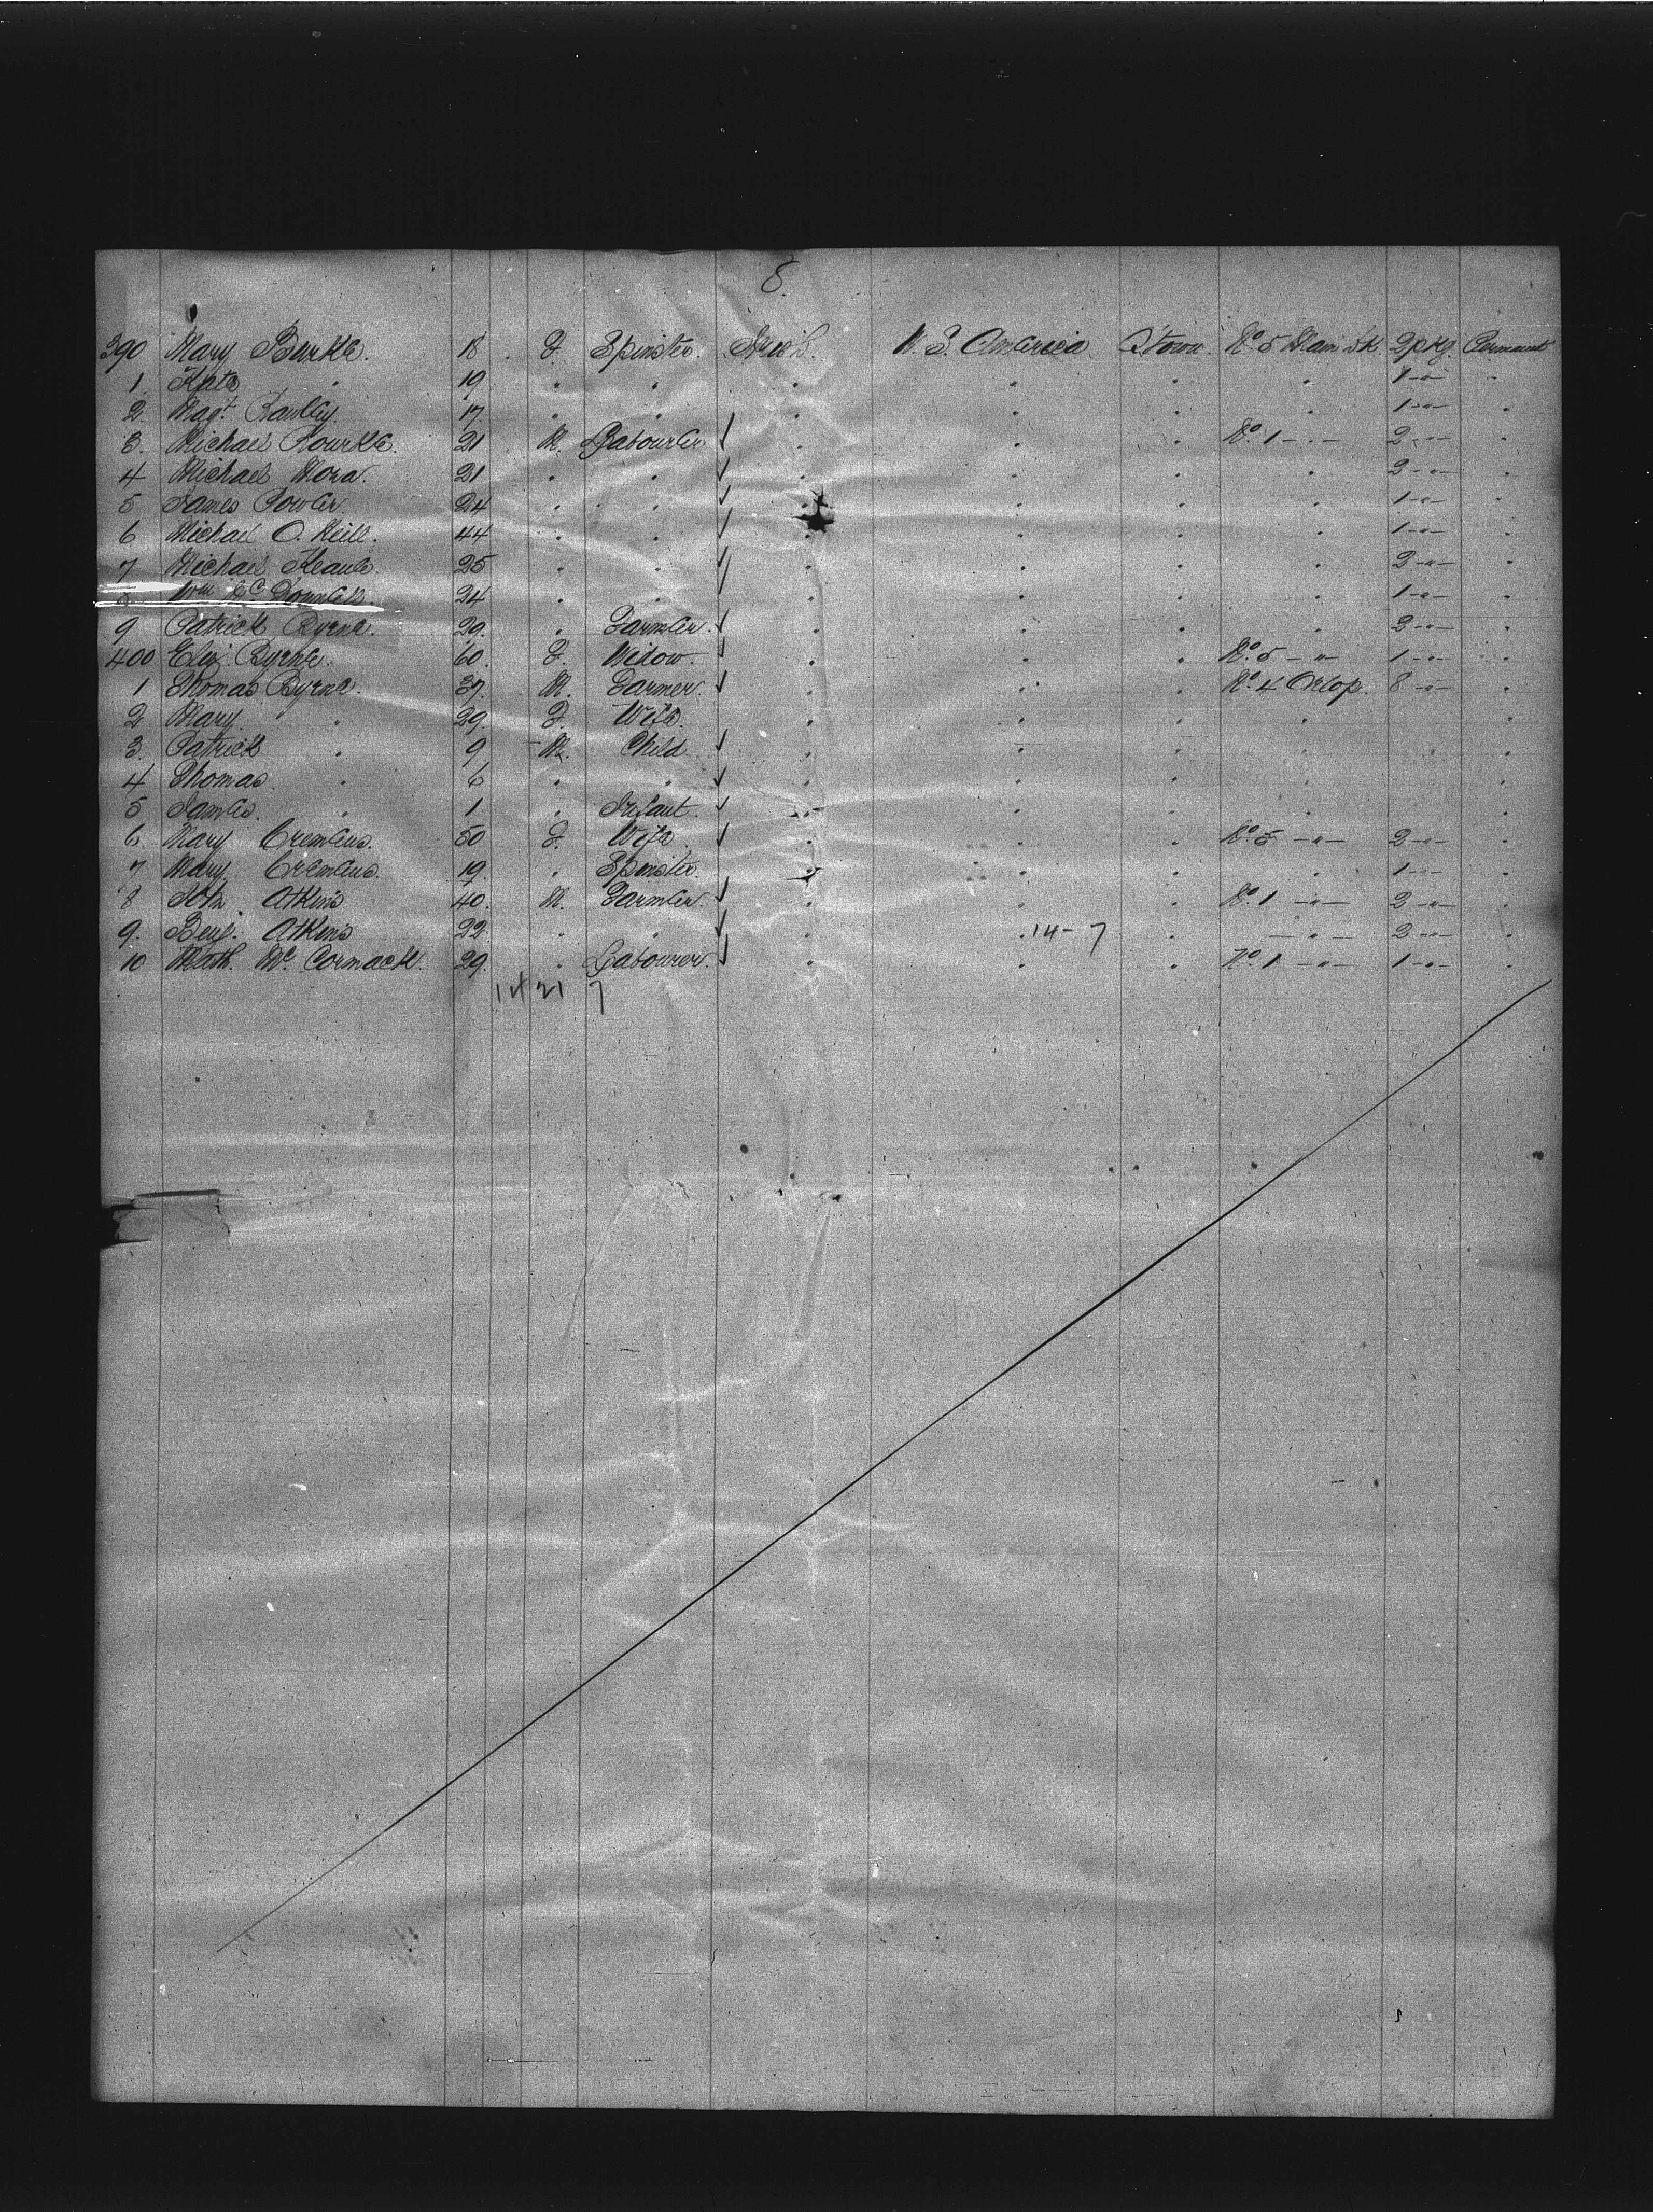 8.
390 Mary Burke. 18 F. Spinster. Irish. U. S. America Q'Town. No. 5 Main dk 2 pkg. Permanent
1 Kate " 19 " " " " " " 1 - " - "
2 Magt. 17 " " " " " " 1 - " - "
3. Michael Rourke. 21 M. Labourer " " " No. 1 - " - 2 - " - "
4 Michael Mora. 21 " " " " " " 2 - " - "
5 James Fowler. 24 " " " " " " 1 - " - "
6 Michael O. Neill. 44 " " " " " " 1 - " - "
7 Michael Keane. 25 " " " " " " 2 - " - "
8 Wm McDonnell. 24 " " " " " " 1 - " - "
9 Patrick Byrne. 29. " Farmer. " " " " 2 - " - "
400 Eliz. Byrne. 60. F. Widow. " " " No. 5 - " - 1 - " - "
1 Thomas Byrne. 37. M. Farmer. " " " No. 4 Orlop. 8 - " - "
2 Mary " 29. F. Wife. " " " " "
3. Patrick " 9 - M. Child " " " " "
4 Thomas " 6 " " " " " " "
5 James. " 1 " Infant. " " " " "
6. Mary Cremens. 50 F. Wife " " " No. 5 - " - 2 - " - "
7 Mary Cremens. 19. " Spinster. " " " " 1 - " - "
8 Atkins 40. M. Farmer. " " " No. 1 - " - 2 - " - "
9. Benj. Atkins 22 " " " " 14 - 7 " - " - 2 - " - "
10 Math. McCormack. 29. " Labourer. " " " No. 1 - " - 1 - " - "
14 21 7